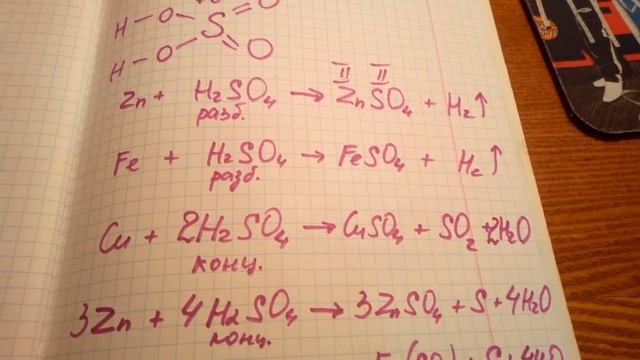 H-O O
S
H-O O
II II
Zn + H₂SO₄ → ZnSO₄ + H₂↑
разб.
Fe + H₂SO₄ → FeSO₄ + H₂↑
разб.
Cu + 2H₂SO₄ → CuSO₄ + SO₂ + 2H₂O
конц.
3Zn + 4H₂SO₄ → 3ZnSO₄ + S + 4H₂O
конц.